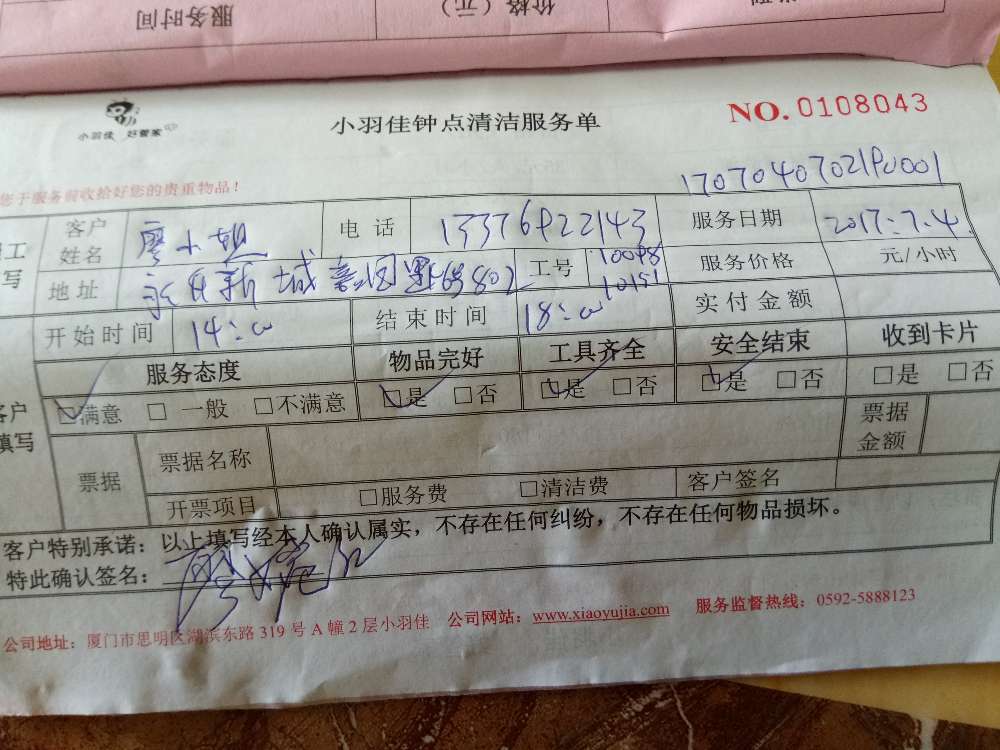 服务时间
价格（元）
小羽佳 好管家
小羽佳钟点清洁服务单
NO.0108043
您于服务前收拾好您的贵重物品！
客户姓名 廖小姐 电话 服务日期 2017.7.4
地址 工号 10098 10151 服务价格 元/小时
开始时间 14:00 结束时间 18:00 实付金额
服务态度 物品完好 工具齐全 安全结束 收到卡片
客户填写 ☑满意 □一般 □不满意 ☑是 □否 ☑是 □否 ☑是 □否 □是 □否
票据 票据名称 票据金额
开票项目 □服务费 □清洁费 客户签名
客户特别承诺：以上填写经本人确认属实，不存在任何纠纷，不存在任何物品损坏。
特此确认签名：
公司地址：厦门市思明区湖滨东路319号A幢2层小羽佳 公司网站：www.xiaoyujia.com 服务监督热线：0592-5888123